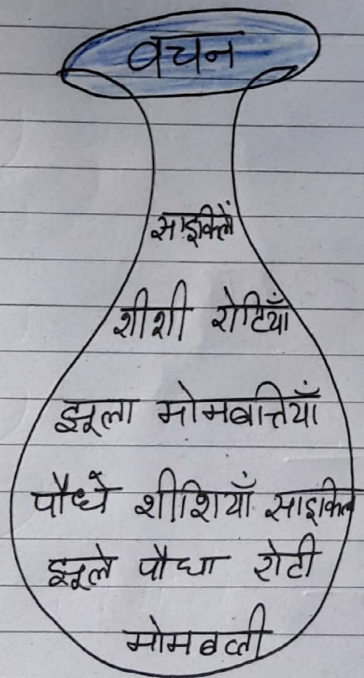 वचन
साइकिलें
शीशी रोटियाँ
झूला मोमबत्तियाँ
पौधे शीशियाँ साइकिल
झूले पौधा रोटी
मोमबत्ती